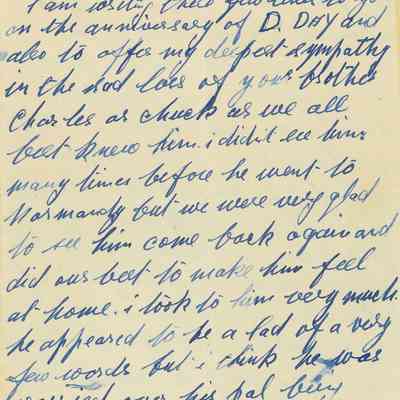 I am writing these few lines to you
on the anniversary of D. DAY and
also to offer my deepest sympathy
in the sad loss of your brother
Charles or chuck as we all
best knew him. i didn't see him
many times before he went to
Normandy but we were very glad
to see him come back again and
did our best to make him feel
at home. i took to him very much.
he appeared to be a lad of a very
few words but i think he was
worried over his pal being